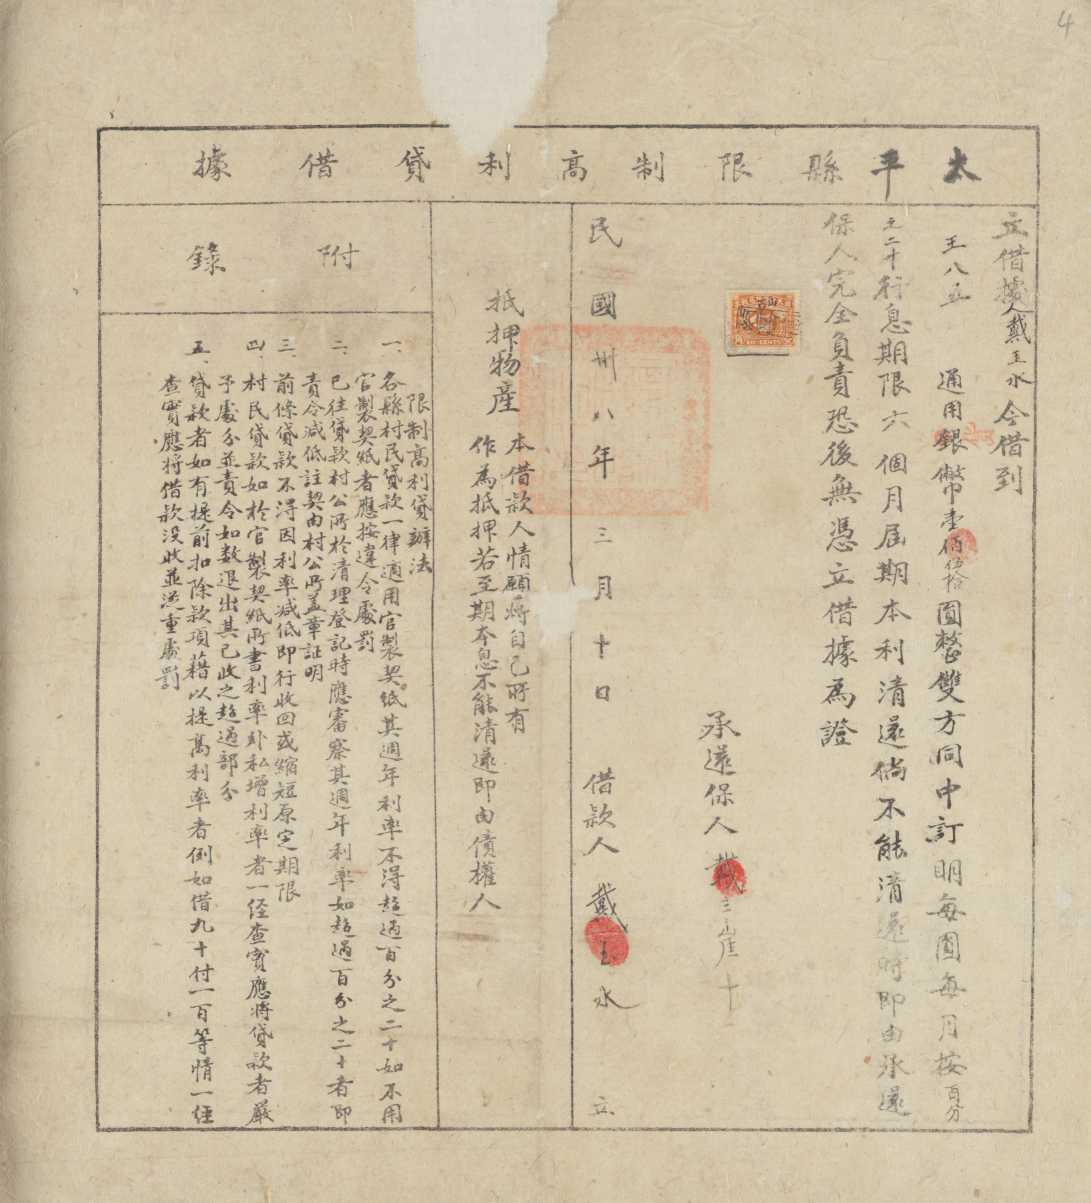 4
太平縣限制高利貸借據
立借據人戴玉水今借到
王八五 通用銀幣壹佰伍拾圓整雙方同中訂明每圓每月按百分
之二十行息期限六個月屆期本利清還倘不能清還時即由承還
保人完全負責恐後無憑立借據為證
承還保人 戴
民國卅八年三月十日 借款人 戴玉水 立
抵押物產
本借款人情願將自己所有
作為抵押若至期本息不能清還即由債權人
附錄
限制高利貸辦法
一、各縣村民貸款一律適用官製契紙其週年利率不得超過百分之二十如不用
官製契紙者應按違令處罰
二、已往貸款村公所於清理登記時應審察其週年利率如超過百分之二十者即
責令減低註契由村公所蓋章証明
三、前條貸款不得因利率減低即行收回或縮短原定期限
四、村民貸款如於官製契紙所書利率外私增利率者一经查實應將貸款者嚴
予處分並責令如数退出其已收之超過部分
五、貸款者如有提前扣除款項藉以提高利率者例如借九十付一百等情一经
查實應將借款没收並從重處罰